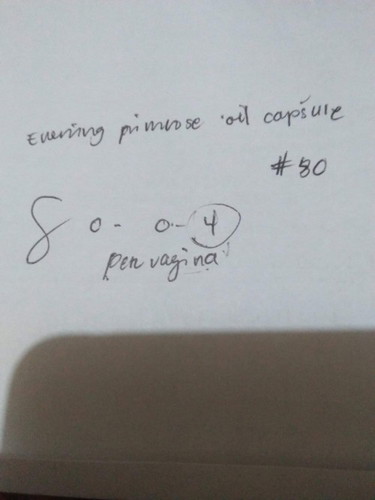 Evening primrose oil capsule
#30
S 0 - 0 - 4
per vagina